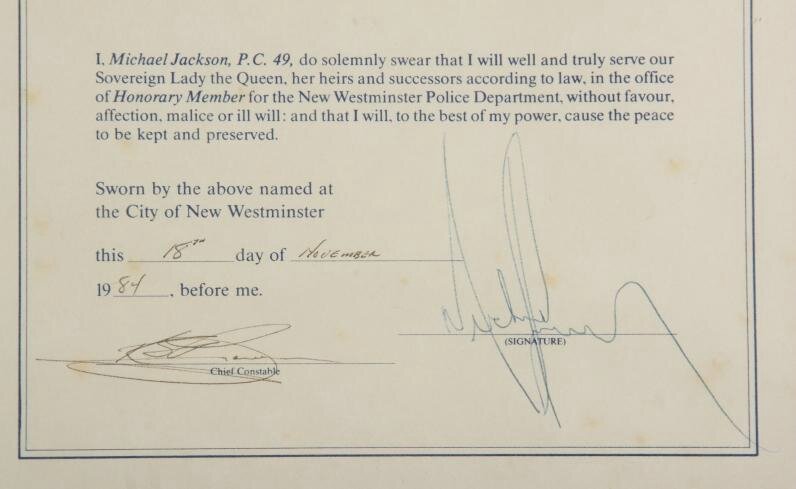 I, Michael Jackson, P.C. 49, do solemnly swear that I will well and truly serve our
Sovereign Lady the Queen, her heirs and successors according to law, in the office
of Honorary Member for the New Westminster Police Department, without favour,
affection, malice or ill will: and that I will, to the best of my power, cause the peace
to be kept and preserved.
Sworn by the above named at
the City of New Westminster
this 18TH day of NOVEMBER
1984, before me.
(SIGNATURE)
Chief Constable